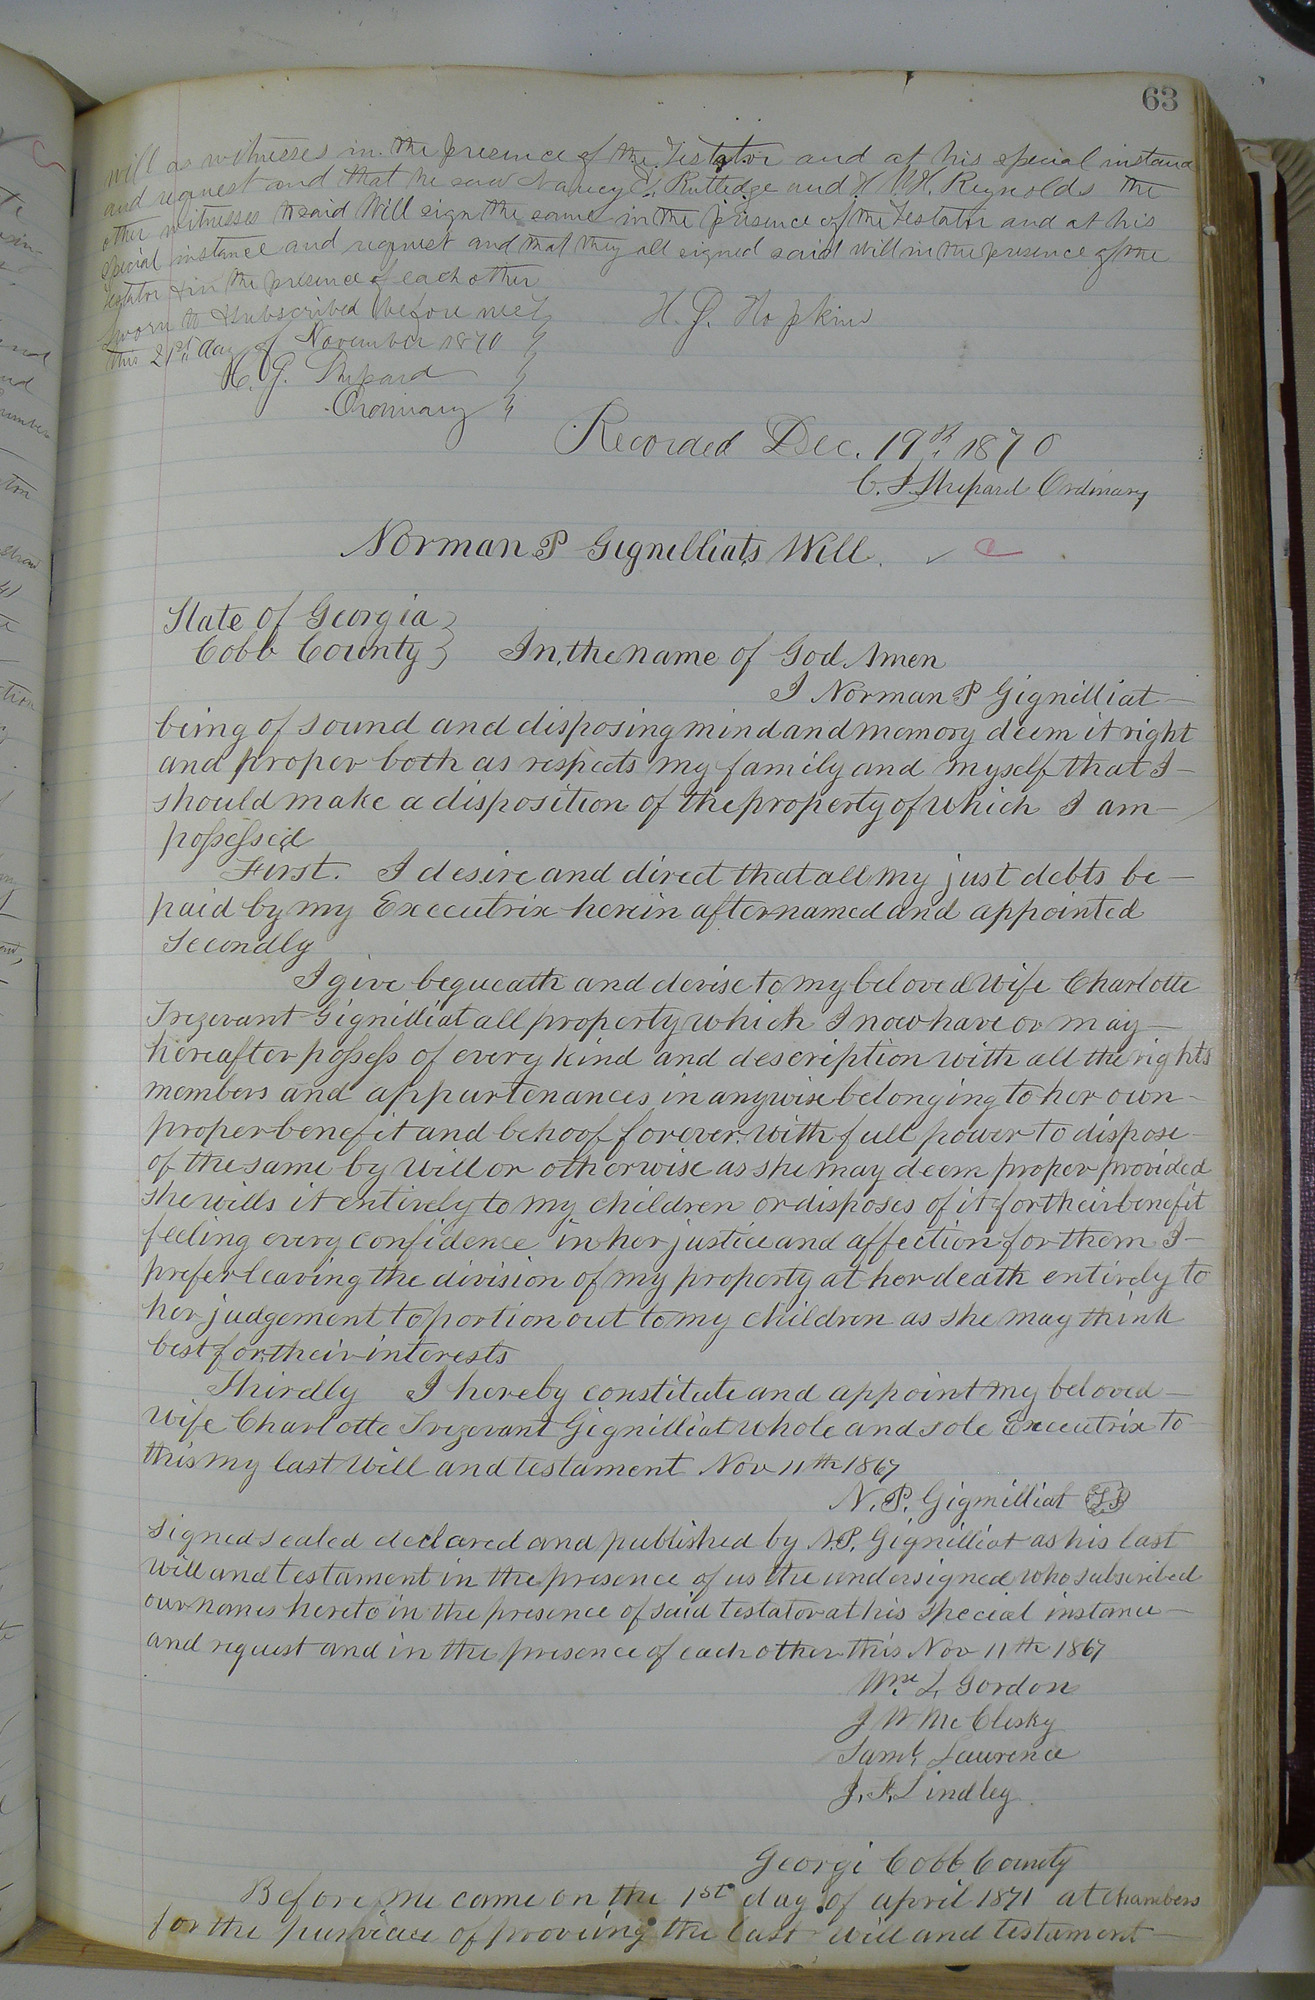 63
will as witnesses in the presence of the Testator and at his special instance
and request and that he saw Nancy E. Rutledge and H. W. Reynolds the
other witnesses to said Will sign the same in the presence of the Testator and at his
special instance and request and that they all signed said will in the presence of the
testator & in the presence of each other
Sworn to & subscribed before me
this 21st day of November 1870
H. G. Hopkins
C. J. Shepard
Ordinary
Recorded Dec. 19th 1870
C. J. Shepard Ordinary
Norman P Gignilliats Will.
State of Georgia
Cobb County In the name of God Amen
I Norman P Gignilliat
being of sound and disposing mind and memory deem it right
and proper both as respects my family and myself that I
should make a disposition of the property of which I am
possessed
First. I desire and direct that all my just debts be
paid by my Executrix herein after named and appointed
Secondly
I give bequeath and devise to my beloved Wife Charlotte
Trezevant Gignilliat all property which I now have or may
hereafter possess of every kind and description with all the rights
members and appurtenances in anywise belonging to her own
proper benefit and behoof forever. With full power to dispose
of the same by Will or otherwise as she may deem proper provided
she wills it entirely to my children or disposes of it for their benefit
feeling every confidence in her justice and affection for them I
prefer leaving the division of my property at her death entirely to
her judgement to portion out to my children as she may think
best for their interests
Thirdly I hereby constitute and appoint my beloved
Wife Charlotte Trezevant Gignilliat whole and sole Executrix to
this my last Will and testament Nov 11th 1867
N. P. Gignilliat LS
Signed sealed declared and published by N.P. Gignilliat as his last
Will and testament in the presence of us the undersigned who subscribed
our names hereto in the presence of said testator at his special instance
and request and in the presence of each other this Nov 11th 1867
Wm L. Gordon
J W McClesky
Saml. Laurence
J. F. Lindley
Georgi Cobb County
Before me came on the 1st day of april 1871 at chambers
for the purpose of prooving the last will and testament